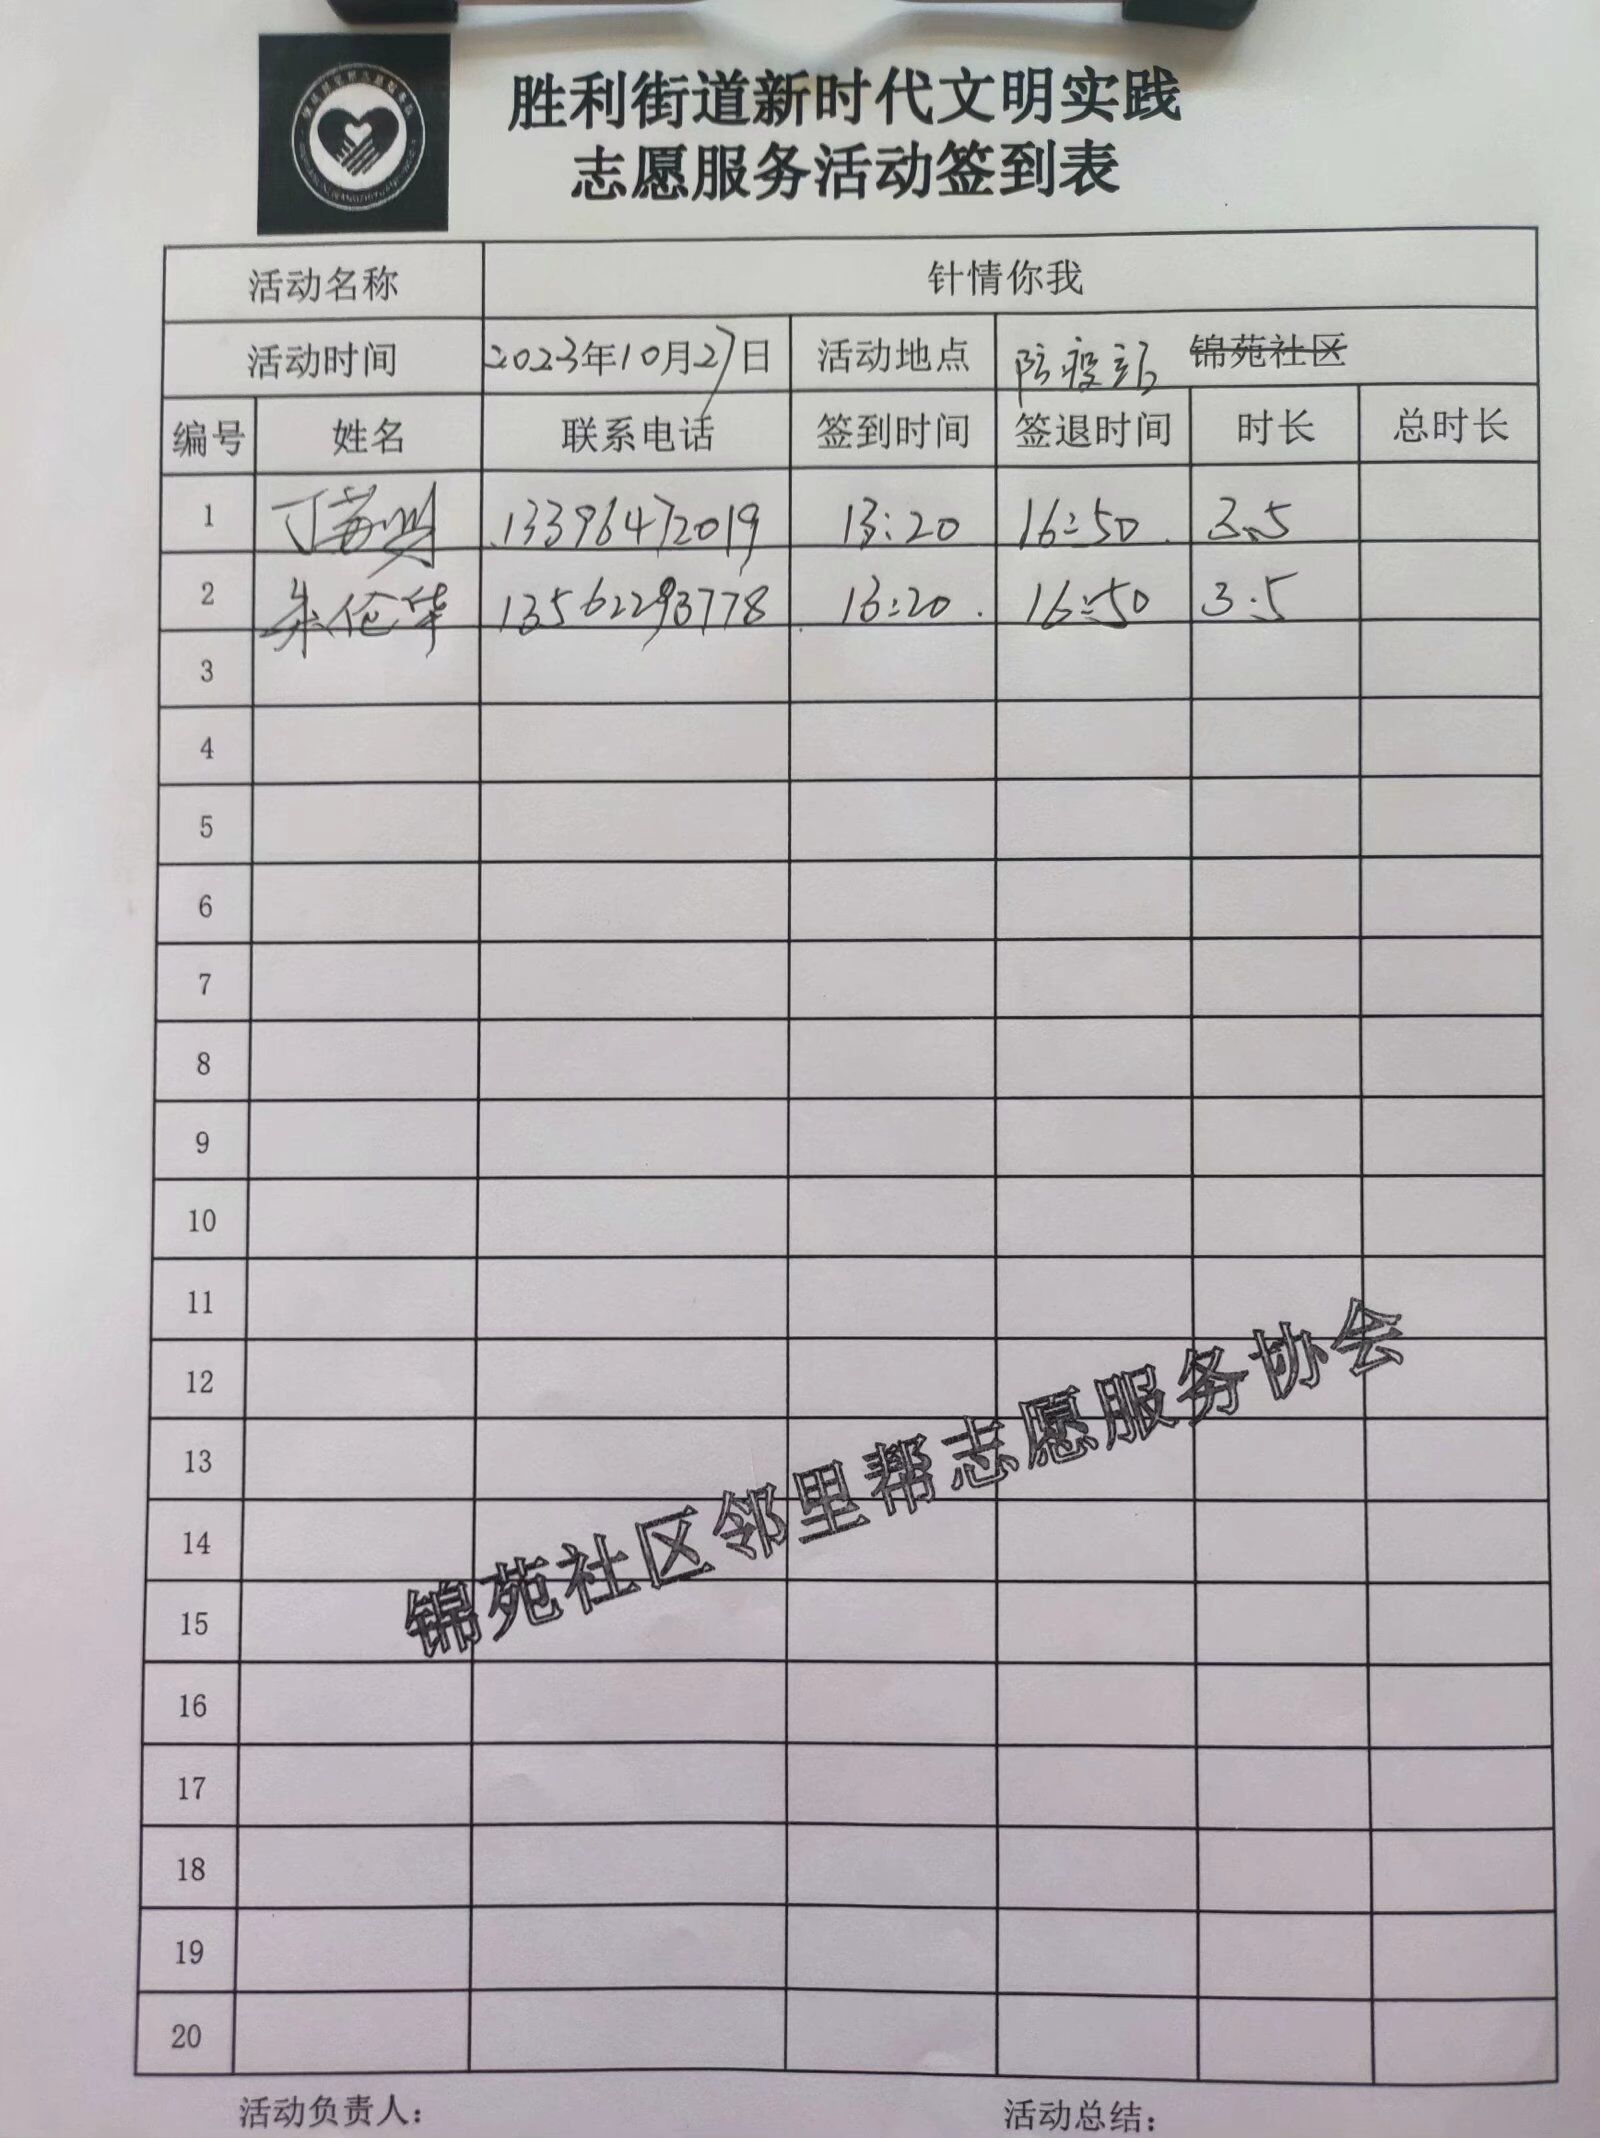 胜利街道新时代文明实践
志愿服务活动签到表
活动名称 针情你我
活动时间 2023年10月27日 活动地点 防疫站 锦苑社区
编号 姓名 联系电话 签到时间 签退时间 时长 总时长
1 丁 13396472019 13:20 16:50 3.5
2 朱伦华 13562293778 13:20 16:50 3.5
3
4
5
6
7
8
9
10
11
12
13
14
15
16
17
18
19
20
锦苑社区邻里帮志愿服务协会
活动负责人: 活动总结: